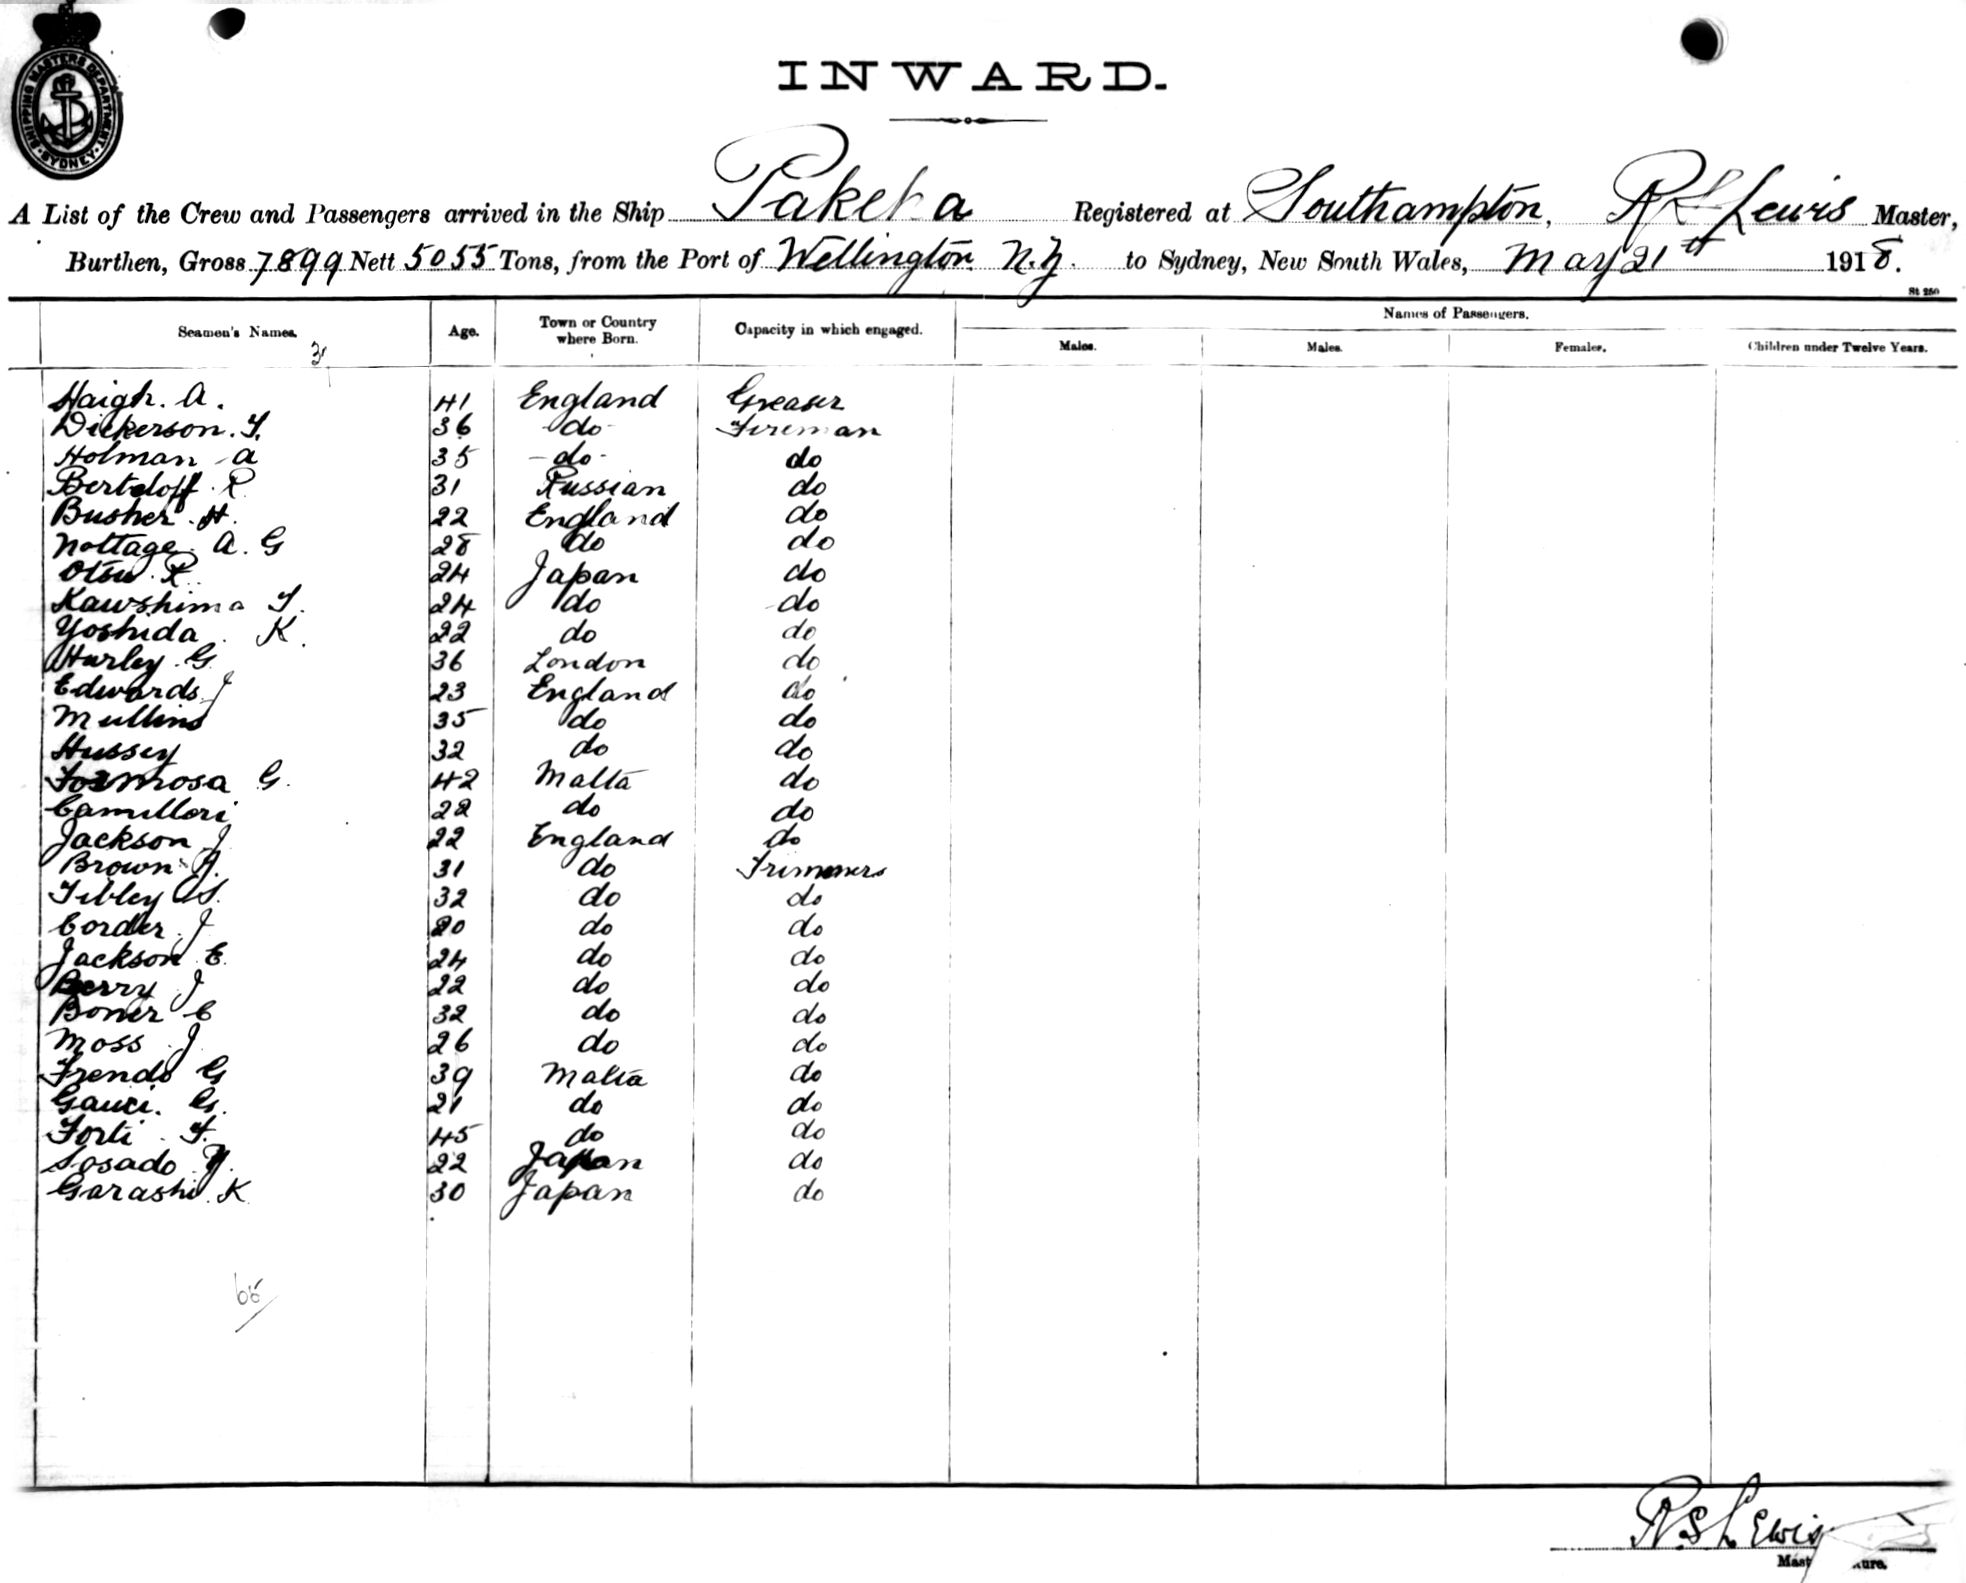 SHIPPING MASTERS DEPARTMENT SYDNEY
INWARD.
A List of the Crew and Passengers arrived in the Ship Pakeha Registered at Southampton, R S Lewis Master,
Burthen, Gross 7899 Nett 5055 Tons, from the Port of Wellington N.Z. to Sydney, New South Wales, May 21st 1918.
St 250
Seamen's Names. Age. Town or Country where Born. Capacity in which engaged. Names of Passengers.
Males. Males. Females. Children under Twelve Years.
3
Haigh. A. 41 England Greaser
Dickerson. T. 36 do Fireman
Holman A 35 do do
Berteloff. R 31 Russian do
Busher. H. 22 England do
Nottage. A. G 28 do do
Otsu. R. 24 Japan do
Kawshima T. 24 do do
Yoshida. K. 22 do do
Hurley. G. 36 London do
Edwards J 23 England do
Mullins 35 do do
Hussey 32 do do
Formosa G. 42 Malta do
Camilleri 22 do do
Jackson J 22 England do
Brown A. 31 do Trimmers
Tibley 32 do do
Corder. J 20 do do
Jackson E. 24 do do
Berry J 22 do do
Boner C 32 do do
Moss J 26 do do
Frendo G 39 Malta do
Gauci. G. 21 do do
Forti. F. 45 do do
Sosado Y. 22 Japan do
Garashi. K 30 Japan do
65
R S Lewis